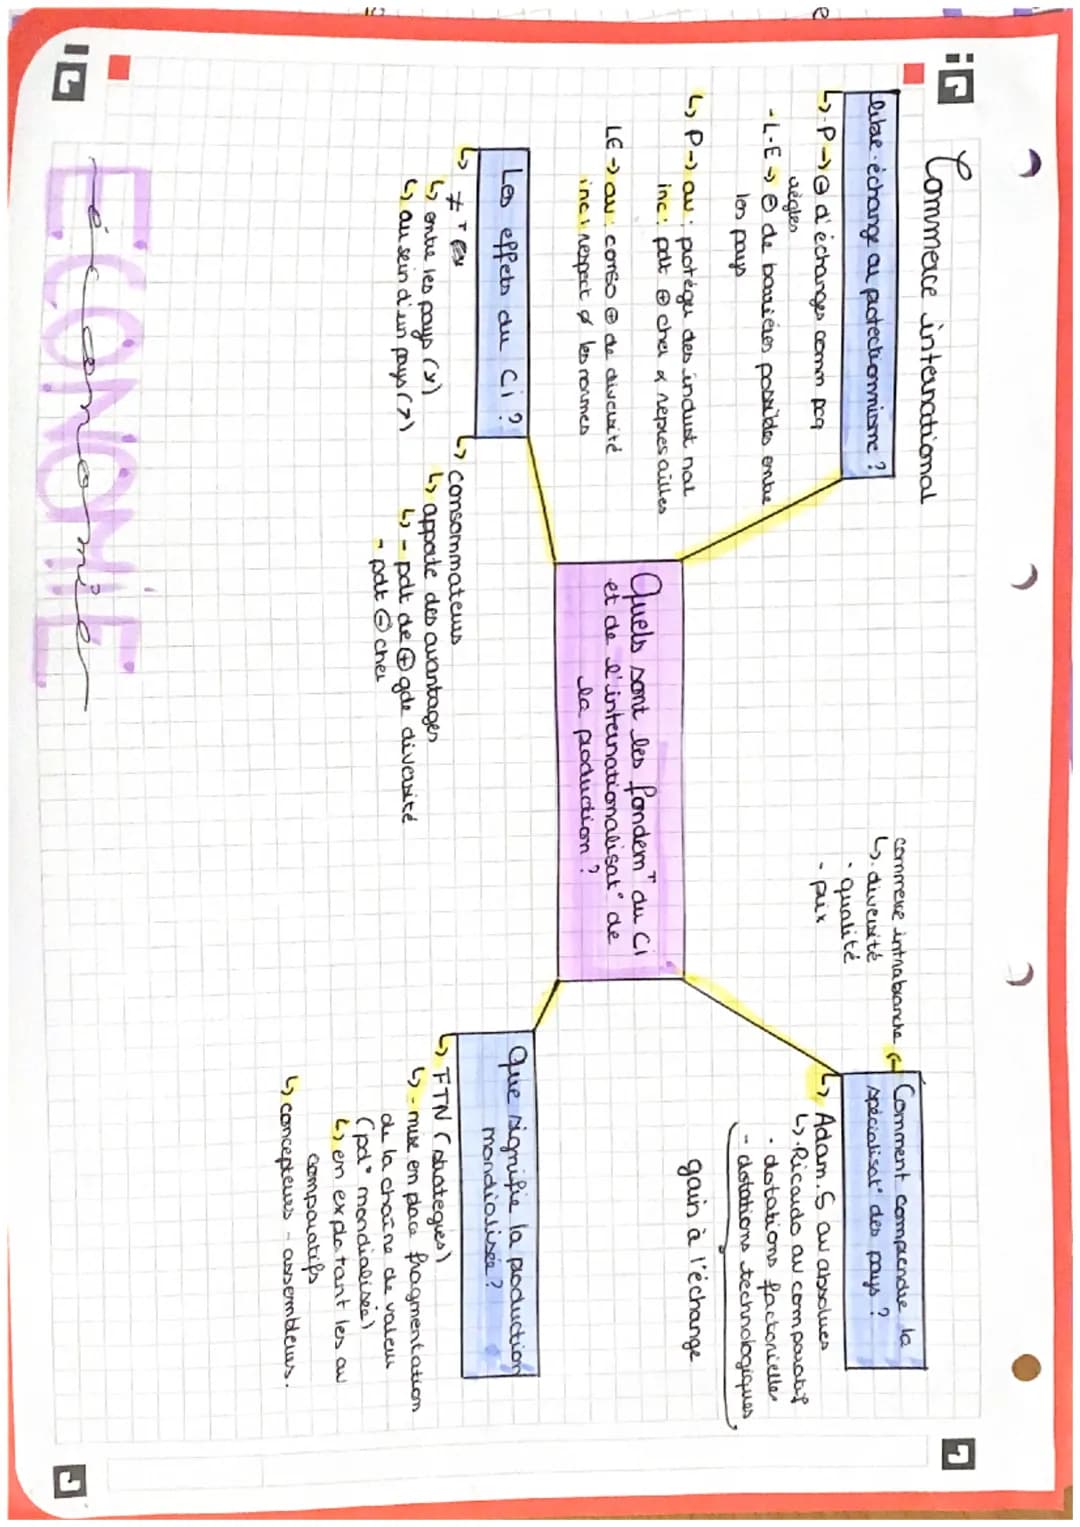 Commerce international
libre-échange ou protectionnisme ?
↳ . P → ⊖ d'échanges comm pcq
règles
- L.E → ⊖ de barrières possibles entre
les pays
↳ P → av : protéger des indust nat
inc : pdt ⊕ cher & represailles
LE → av : conso ⊕ de diversité
inc : respect ∅ les normes
Les effets du Ci ?
↳ entre les pays (↘)
↳ au sein d'un pays (↗)
↳ Consommateurs
↳ apporte des avantages
↳ - pdt de ⊕ gde diversité
- pdt ⊖ cher
Quels sont les fondemᵀ du Ci
et de l'internationalisat° de
la production ?
Comment comprendre la
spécialisat° des pays ?
commerce intrabranche
↳ . diversité
. qualité
- prix
↳ Adam.S av absolues
↳ . Ricardo av comparatif
. dotations factorielles
- dotations technologiques
gain à l'échange
Que signifie la production
mondialisée ?
↳ FTN (strategies)
↳ - mise en place fragmentation
de la chaîne de valeur
(pd° mondialisée)
↳ en explotant les av
comparatifs
↳ concepteurs - assembleurs.
ECONOMIE
économie